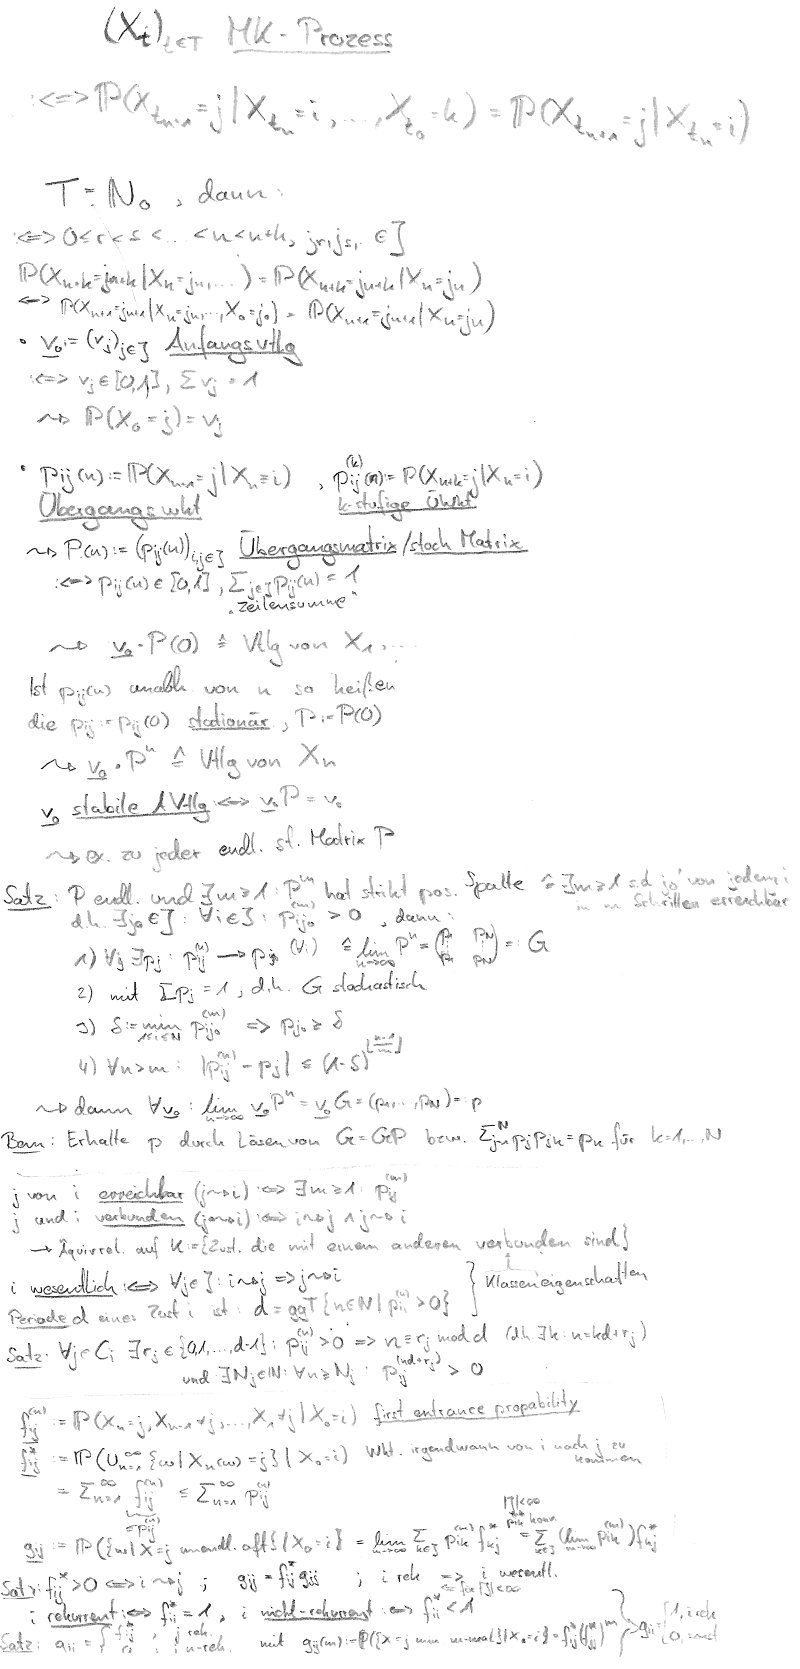 (X_t)_{t∈T} MK-Prozess
:<=> ℙ(X_{t_{n+1}}=j | X_{t_n}=i, ..., X_{t_0}=k) = ℙ(X_{t_{n+1}}=j | X_{t_n}=i)
T = ℕ_0, dann:
:<=> 0≤r<s<...<n<n+k, j_r, j_s, .. ∈ J
ℙ(X_{n+k}=j_{n+k} | X_n=j_n, ...) = ℙ(X_{n+k}=j_{n+k} | X_n=j_n)
<=> ℙ(X_{n+1}=j_{n+1} | X_n=j_n, ..., X_0=j_0) = ℙ(X_{n+1}=j_{n+1} | X_n=j_n)
• v_0 := (v_j)_{j∈J} Anfangsvtlg
:<=> v_j ∈ [0,1], Σ v_j = 1
⇝ ℙ(X_0=j) = v_j
• p_{ij}(n) := ℙ(X_{n+1}=j | X_n=i), p_{ij}^{(k)}(n) := ℙ(X_{n+k}=j | X_n=i)
Übergangswkt k-stufige Üwkt
⇝ P(n) := (p_{ij}(n))_{i,j∈J} Übergangsmatrix/stoch Matrix
:<=> p_{ij}(n) ∈ [0,1], Σ_{j∈J} p_{ij}(n) = 1
"Zeilensumme"
⇝ v_0 · P(0) ≙ Vtlg von X_1, ...
Ist p_{ij}(n) unabh. von n so heißen
die p_{ij} := p_{ij}(0) stationär, P := P(0)
⇝ v_0 · P^n ≙ Vtlg von X_n
v_0 stabile AVtlg :<=> v_0 P = v_0
⇝ ex. zu jeder endl. st. Matrix P
Satz: P endl. und ∃m≥1: P^m hat strikt pos. Spalte ≙ ∃m≥1 s.d j_0 von jedem i
in m Schritten erreichbar
d.h. ∃j_0∈J: ∀i∈J: p_{ij_0}^{(m)} > 0, dann:
1) ∀j ∃p_j: p_{ij}^{(n)} → p_j (∀i) ≙ lim_{n→∞} P^n = (p_1 p_N / p_1 p_N) =: G
2) mit Σp_j = 1, d.h. G stochastisch
3) δ := min_{1≤i≤N} p_{ij_0}^{(m)} => p_{j_0} ≥ δ
4) ∀n>m: |p_{ij}^{(n)} - p_j| ≤ (1-δ)^{⌊(n-1)/m⌋}
⇝ dann ∀v_0: lim_{n→∞} v_0 P^n = v_0 G = (p_1, .., p_N) =: p
Bem: Erhalte p durch Lösen von G = GP bzw. Σ_{j=1}^N p_j p_{jk} = p_k für k=1,...,N
j von i erreichbar (j⇝i) :<=> ∃m≥1: p_{ij}^{(m)}
j und i verbunden (j⇝i) :<=> i⇝j ∧ j⇝i
→ Äquivrel. auf K := {Zust. die mit einem anderen verbunden sind}
i wesentlich :<=> ∀j∈J: i⇝j => j⇝i
Klasseneigenschaften
Periode d eines Zust i ist: d = ggT{n∈ℕ | p_{ii}^{(n)} > 0}
Satz: ∀j∈C_i ∃r_j∈{0,1,...,d-1}: p_{ij}^{(n)} > 0 => n ≡ r_j mod d (d.h. ∃k: n=kd+r_j)
und ∃N_j∈ℕ: ∀n≥N_j: p_{ij}^{(nd+r_j)} > 0
f_{ij}^{(n)} := ℙ(X_n=j, X_{n-1}≠j, ..., X_1≠j | X_0=i) first entrance propability
f_{ij}^* := ℙ(∪_{n=1}^∞ {ω | X_n(ω)=j} | X_0=i) Wkt. irgendwann von i nach j zu
kommen
= Σ_{n=1}^∞ f_{ij}^{(n)} ≤ Σ_{n=1}^∞ p_{ij}^{(n)}
≤p_{ij}^{(n)}
g_{ij} := ℙ({ω | X=j unendl. oft} | X_0=i) = lim_{n→∞} Σ_{k∈J} p_{ik}^{(n)} f_{kj}^* = Σ_{k∈J} (lim_{n→∞} p_{ik}^{(n)}) f_{kj}^*
|J|<∞
Satz: f_{ij}^* > 0 <=> i⇝j ; g_{ij} = f_{ij}^* g_{jj} ; i rek => i wesentl.
<= für |J|<∞
i rekurrent :<=> f_{ii}^* = 1, i nicht-rekurrent :<=> f_{ii}^* < 1
Satz: g_{ij} = { f_{ij}^*, j rek. mit g_{ij}(m) := ℙ({X=j min m-mal} | X_0=i) = f_{ij}^* (f_{jj}^*)^{m} } g_{ii} = { 1, i rek
0, sonst